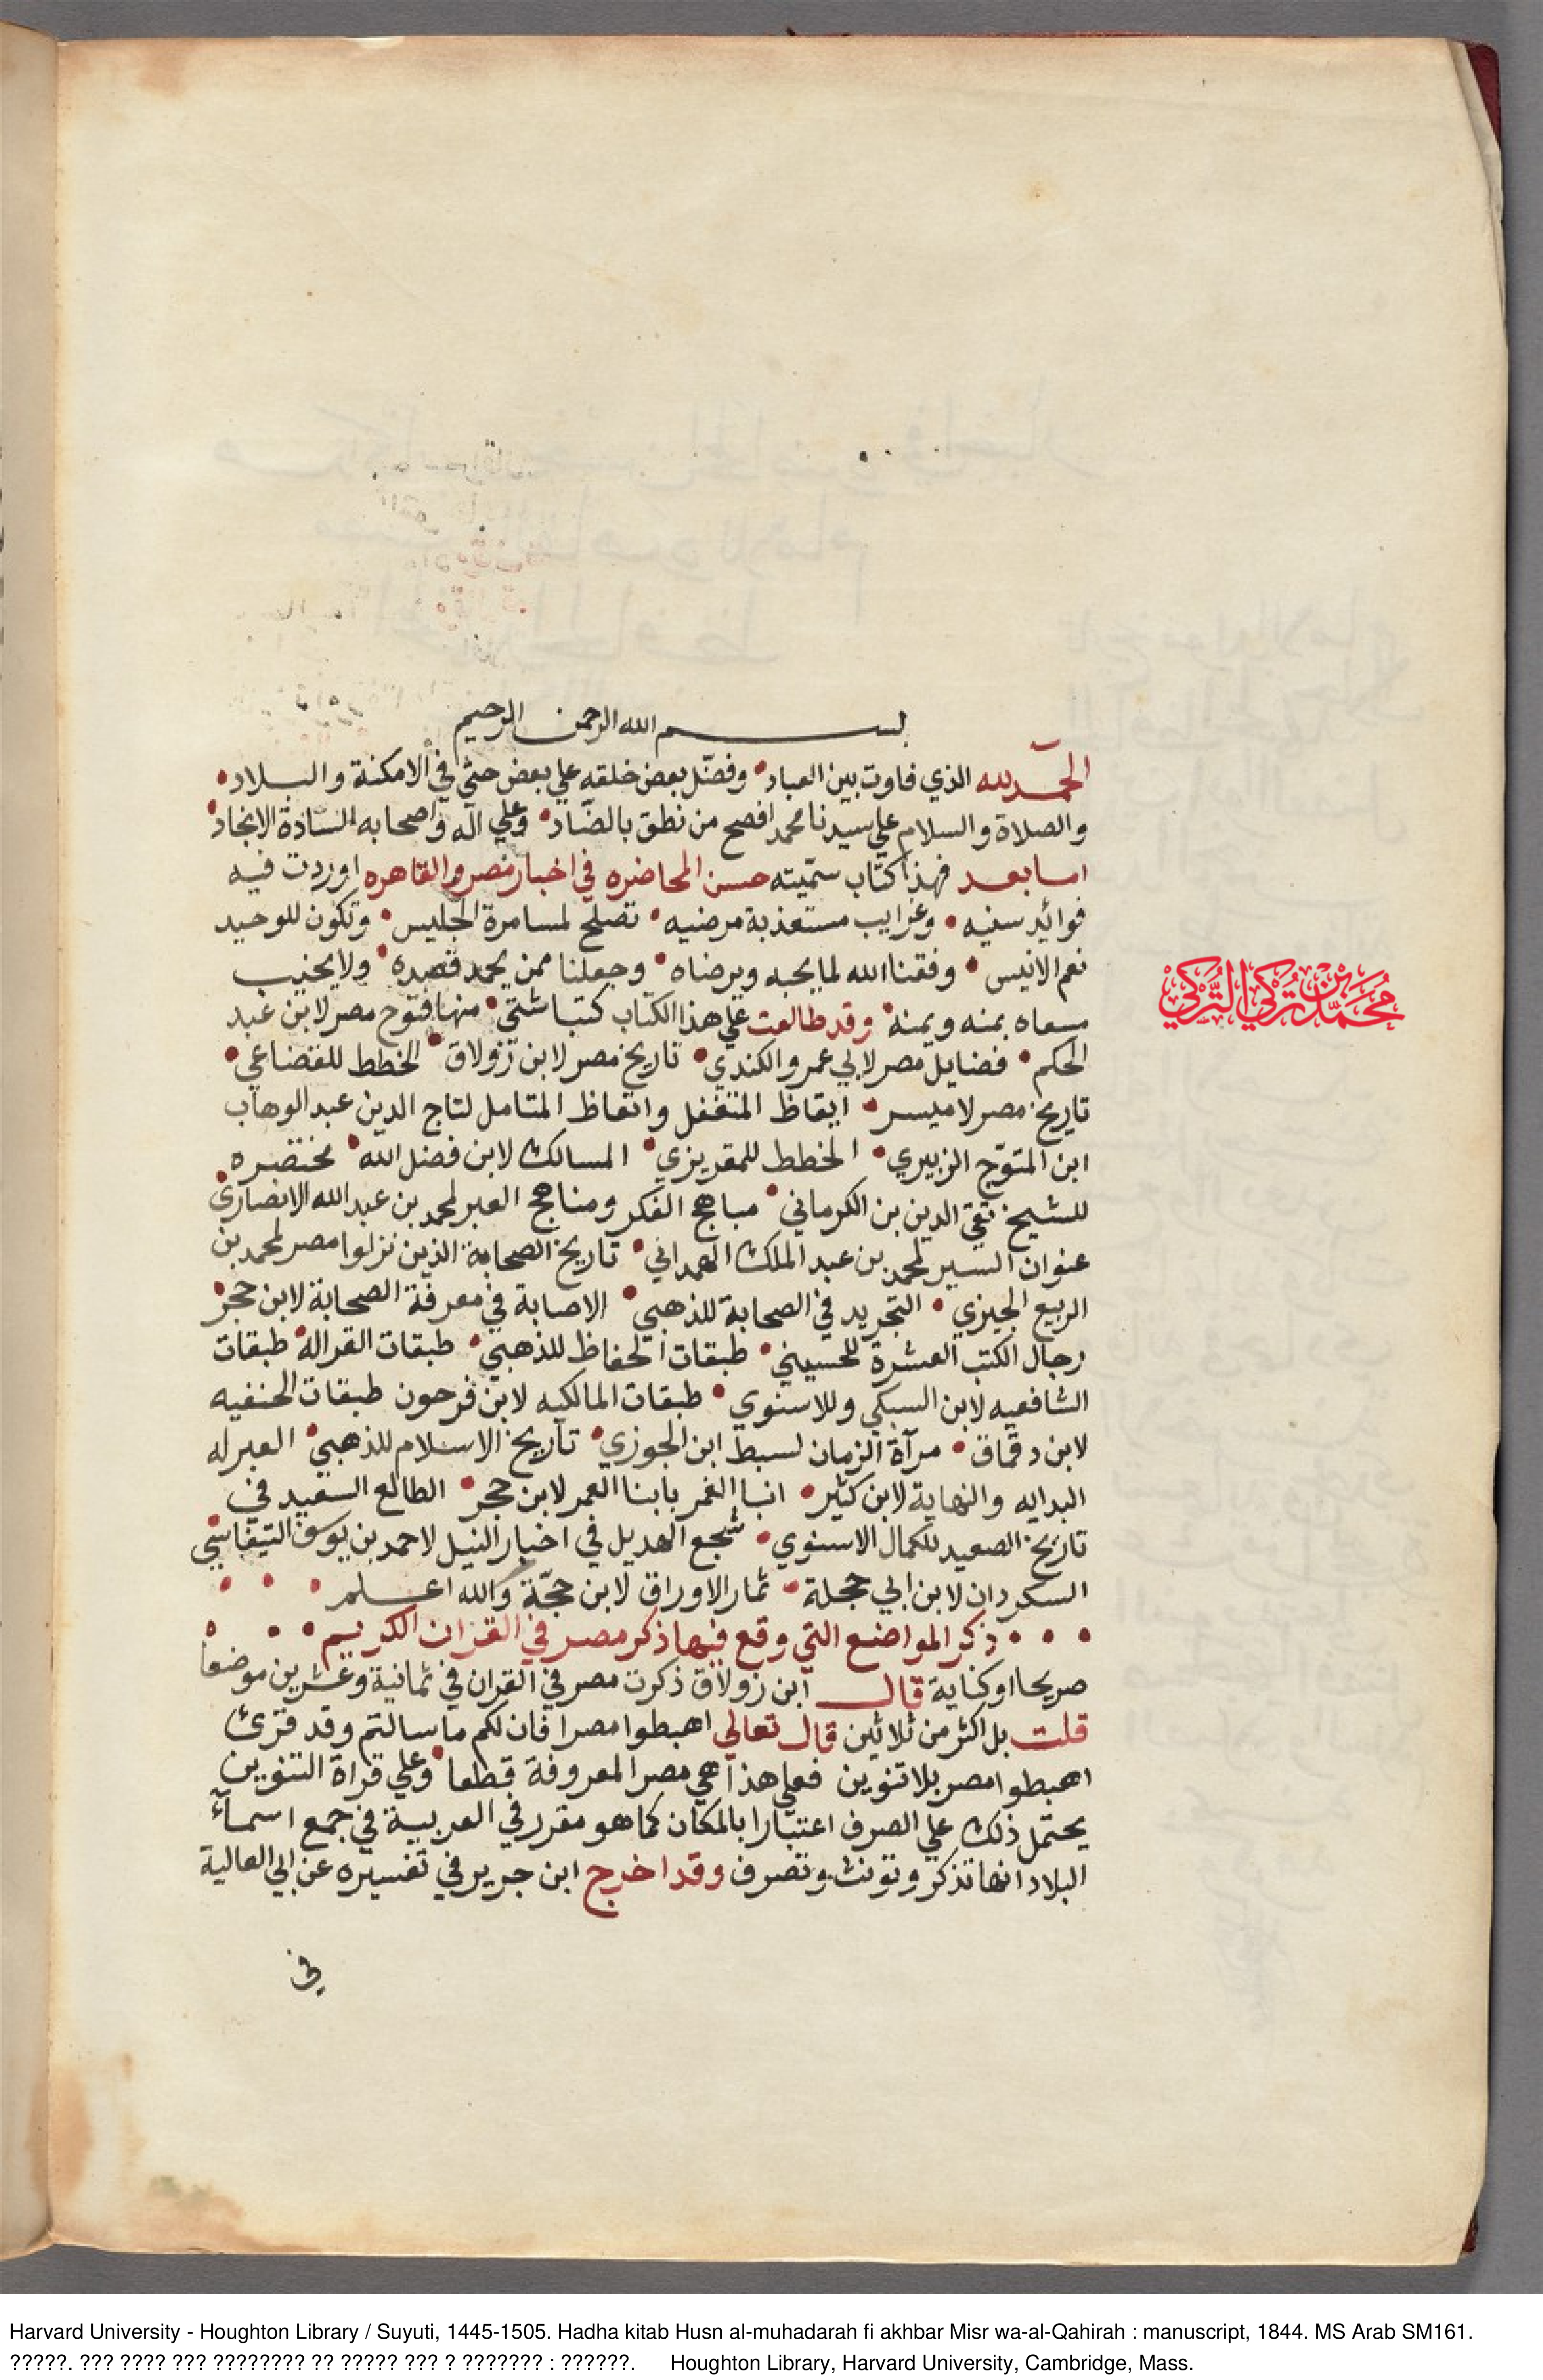 بسم الله الرحمن الرحيم
الحمد لله الذي فاوت بين العباد وفضّل بعض خلقه علي بعض حتي في الامكنة والبلاد
والصلاة والسلام علي سيدنا محمد افصح من نطق بالضاد وعلي اله واصحابه السّادة الانجاد
اما بعد فهذا كتاب سمّيته حسن المحاضره في اخبار مصر والقاهره اوردت فيه
فوائد سنيه وغرايب مستعذبة مرضيه تصلح لمسامرة الجليس وتكون للوحيد
نعم الانيس وفقنا الله لما يحبه ويرضاه وجعلنا ممن يحمد قصده ولا يخيب
مسعاه بمنه ويمنه وقد طالعت علي هذا الكتاب كتبا شتي منها فتوح مصر لابن عبد
الحكم فضايل مصر لابي عمرو الكندي تاريخ مصر لابن زولاق الخطط للقضاعي
تاريخ مصر لاميسر ايقاظ المتغفل واتعاظ المتامل لتاج الدين عبد الوهاب
ابن المتوّج الزبيري الخطط للمقريزي المسالك لابن فضل الله مختصره
للشيخ تقي الدين بن الكرماني مباهج الفكر ومناهج العبر لمحمد بن عبد الله الانصاري
عنوان السير لمحمد بن عبد الملك الهمداني تاريخ الصحابة الذين نزلوا مصر لمحمد بن
الربيع الجيزي التجريد في الصحابة للذهبي الاصابة في معرفة الصحابة لابن حجر
رجال الكتب العشرة للحسيني طبقات الحفاظ للذهبي طبقات القرا له طبقات
الشافعيه لابن السبكي وللاسنوي طبقات المالكيه لابن فرحون طبقات الحنفيه
لابن دقماق مرآة الزمان لسبط ابن الجوزي تاريخ الاسلام للذهبي العبر له
البدايه والنهاية لابن كثير انبا الغمر بابنا العمر لابن حجر الطالع السعيد في
تاريخ الصعيد للكمال الاسنوي شجع الهديل في اخبار النيل لاحمد بن يوسف التيفاشي
السكردان لابن ابي حجلة ثمار الاوراق لابن حجّة والله اعلم
ذكر المواضع التي وقع فيها ذكر مصر في القران الكريم
صريحا او كناية قال ابن زولاق ذكرت مصر في القران في ثمانية وعشرين موضعا
قلت بل اكثر من ثلاثين قال تعالي اهبطوا مصرا فان لكم ما سالتم وقد قرئ
اهبطوا مصر بلا تنوين فعلي هذا هي مصر المعروفة قطعا وعلي قراة التنوين
يحتمل ذلك علي الصرف اعتبارا بالمكان كما هو مقرر في العربية في جمع اسمآء
البلاد انها تذكر وتونث وتصرف وقد اخرج ابن جرير في تفسيره عن ابي العالية
في
محمد بن تركي التركي
Harvard University - Houghton Library / Suyuti, 1445-1505. Hadha kitab Husn al-muhadarah fi akhbar Misr wa-al-Qahirah : manuscript, 1844. MS Arab SM161.
?????. ??? ???? ??? ???????? ?? ????? ??? ? ??????? : ??????. Houghton Library, Harvard University, Cambridge, Mass.